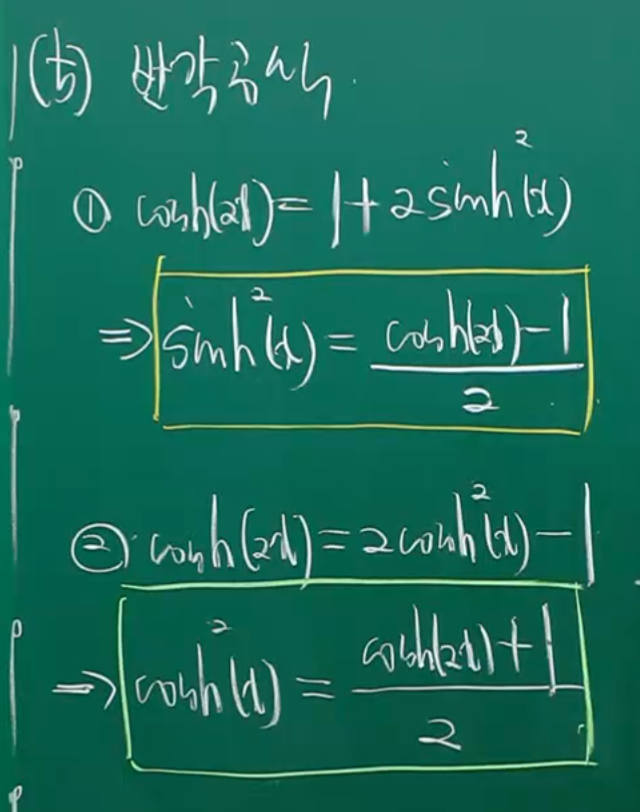 (b) 반각공식.
① cosh(2x) = 1 + 2sinh²(x)
⇒ sinh²(x) = (cosh(2x) - 1) / 2
② cosh(2x) = 2cosh²(x) - 1
⇒ cosh²(x) = (cosh(2x) + 1) / 2